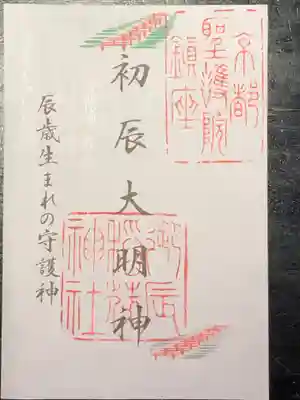 京都
聖護院
鎮座
初辰大明神
辰歳生まれの守護神
御辰
稲荷
神社